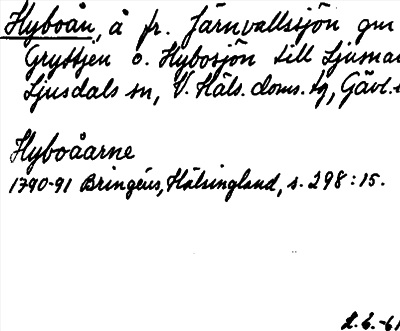 Hyboån, å fr. Järnvallssjön gm
Gryttjen o. Hybosjön till Ljusnan
Ljusdals sn, V. Häls. doms. tg, Gävl.
Hyboåarne
1790-91 Bringéus, Hälsingland, s. 298:15.
L.E.-61